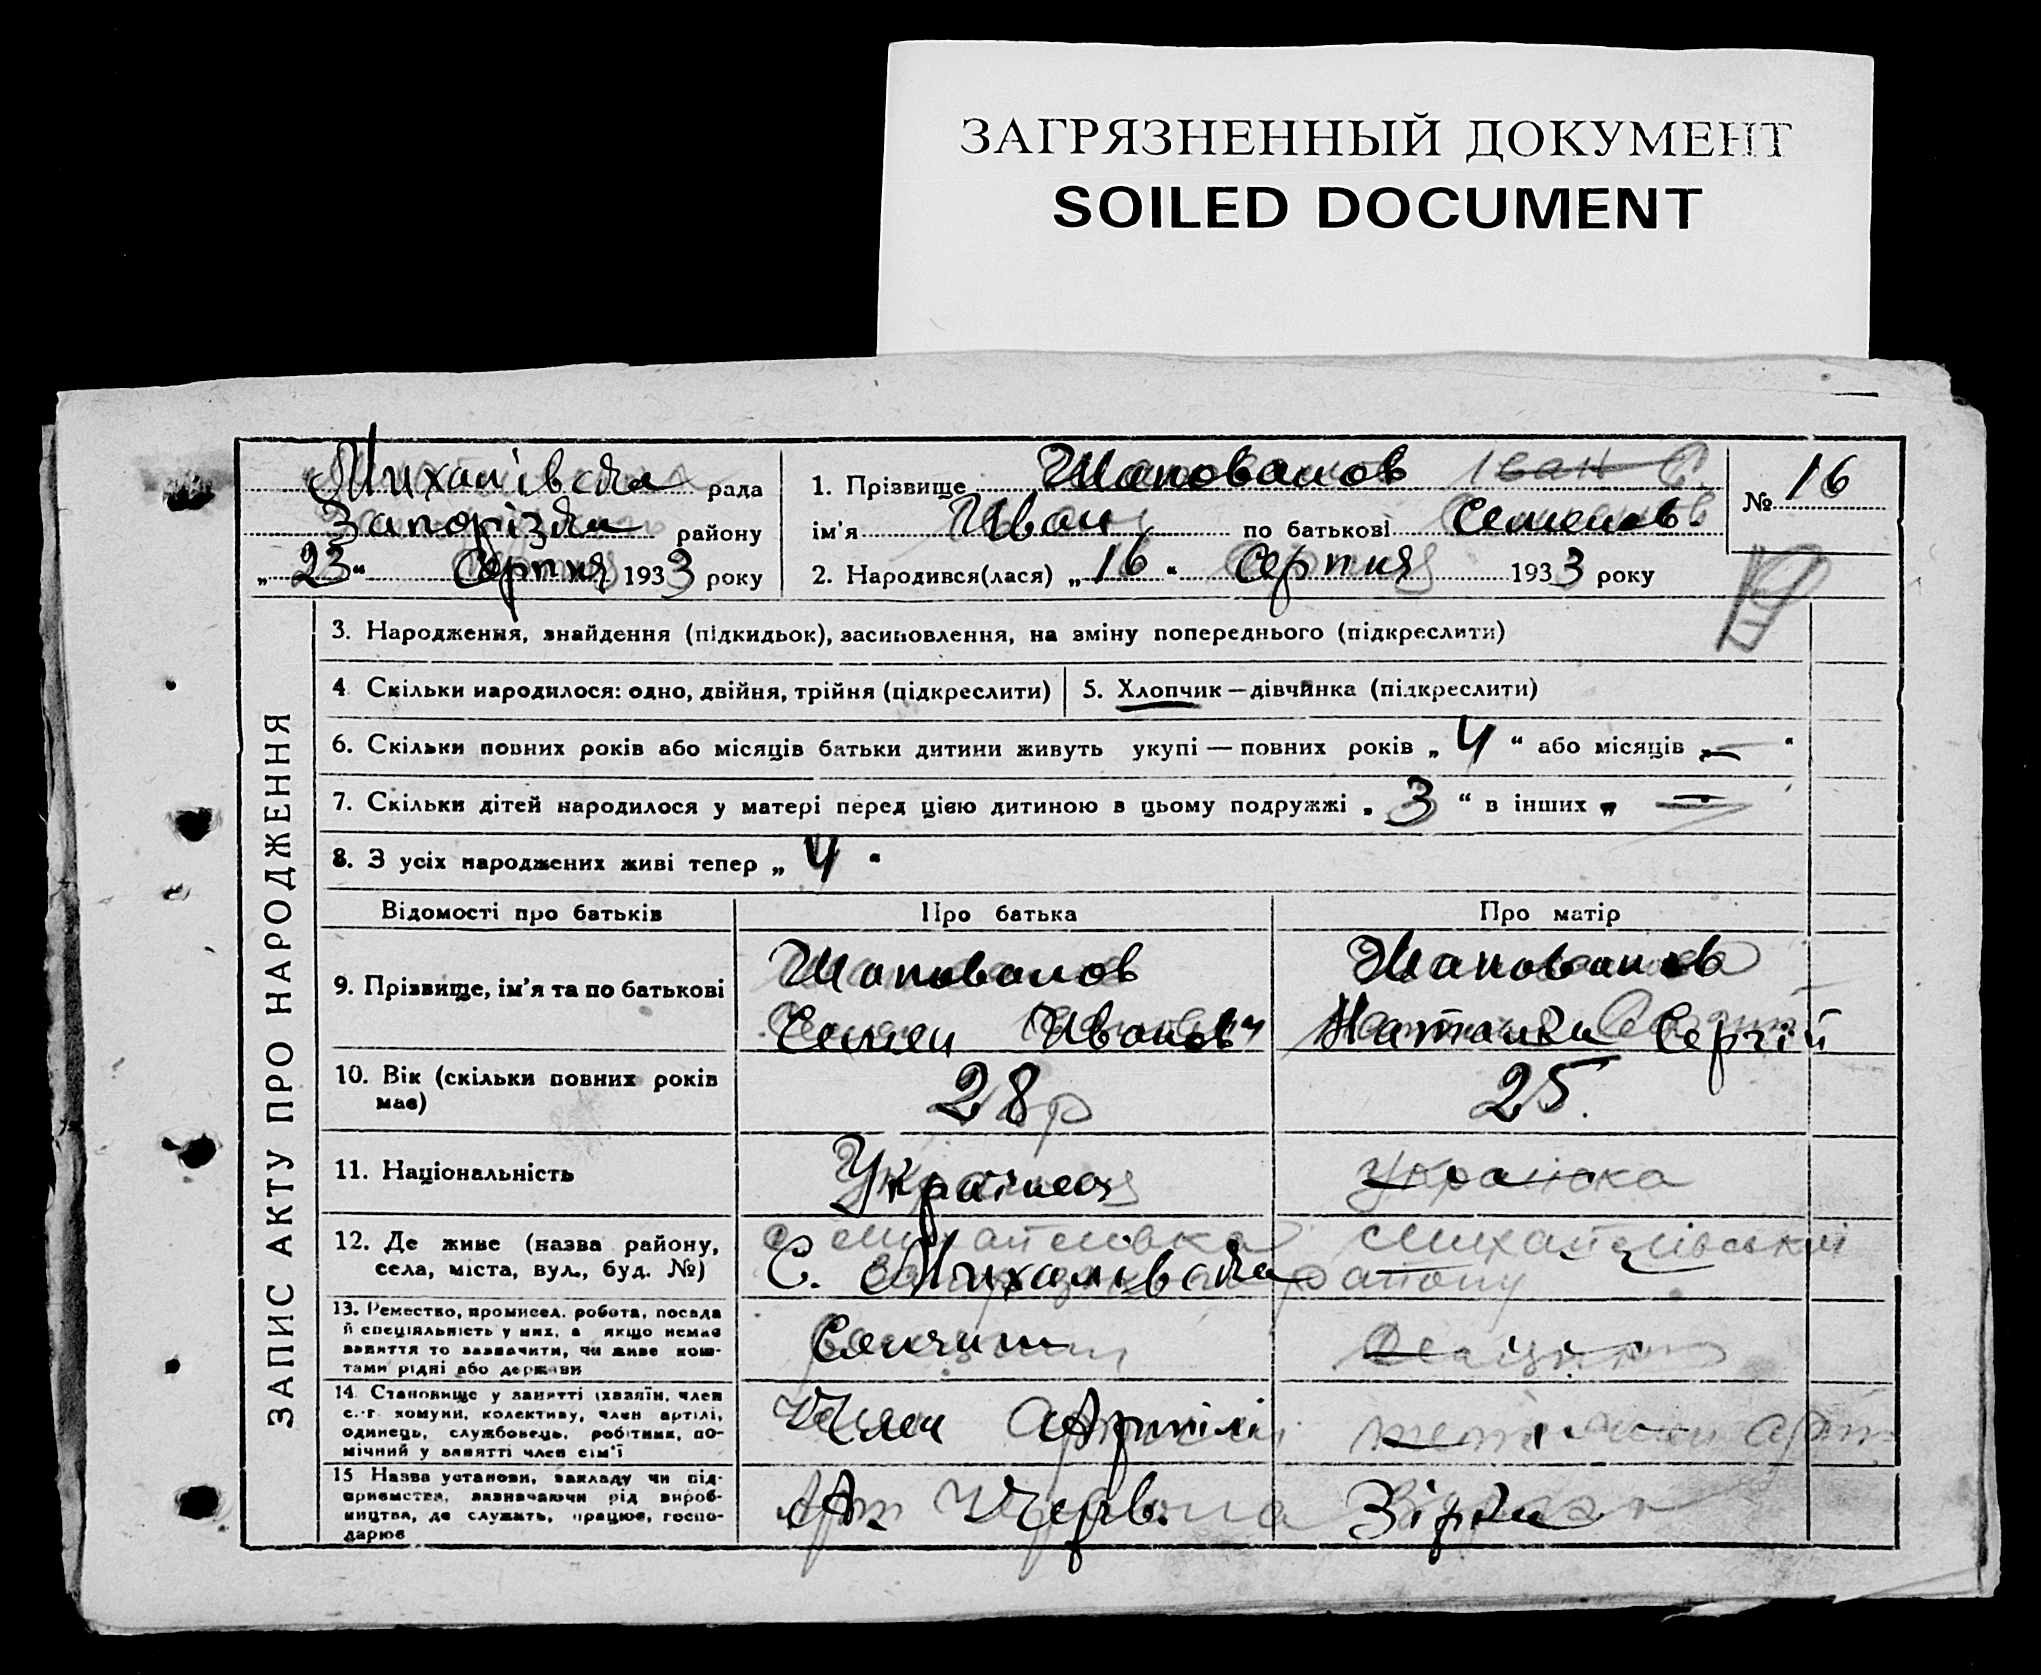 ЗАГРЯЗНЕННЫЙ ДОКУМЕНТ
SOILED DOCUMENT
ЗАПИС АКТУ ПРО НАРОДЖЕННЯ
Михайлівска рада
Запорізка району
„23“ Серпня 1933 року
1. Прізвище Шаповалов Іван С.
ім'я Иван по батькові Семенов.
2. Народився(лася) „16“ Серпня 1933 року
№ 16
3. Народження, знайдення (підкидьок), засиновлення, на зміну попереднього (підкреслити)
4. Скільки народилося: одно, двійня, трійня (підкреслити)
5. Хлопчик — дівчинка (підкреслити)
6. Скільки повних років або місяців батьки дитини живуть укупі — повних років „4“ або місяців „—“
7. Скільки дітей народилося у матері перед цією дитиною в цьому подружжі „3“ в інших „ —
8. З усіх народжених живі тепер „4“
Відомості про батьків Про батька Про матір
9. Прізвище, ім'я та по батькові
Шаповалов
Семен Иванов
Шаповалов
Наталка Сергій
10. Вік (скільки повних років має)
28 р
25.
11. Національність
Українец
Українка
12. Де живе (назва району, села, міста, вул., буд. №)
с. Михайлівка Михайлівський
С. Михалівска району
13. Ремество, промисел, робота, посада й спеціяльність у них, а якщо немає заняття то зазначити, чи живе коштами рідні або держави
14. Становище у занятті (хазяїн, член с.-г. комуни, колективу, член артілі, одинець, службовець, робітник, помічний у занятті член сім'ї
Член Артілі
член арт
15 Назва установи, закладу чи підприємства, зазначаючи рід виробництва, де служить, працює, господарює
Ар. Черв. Зірка